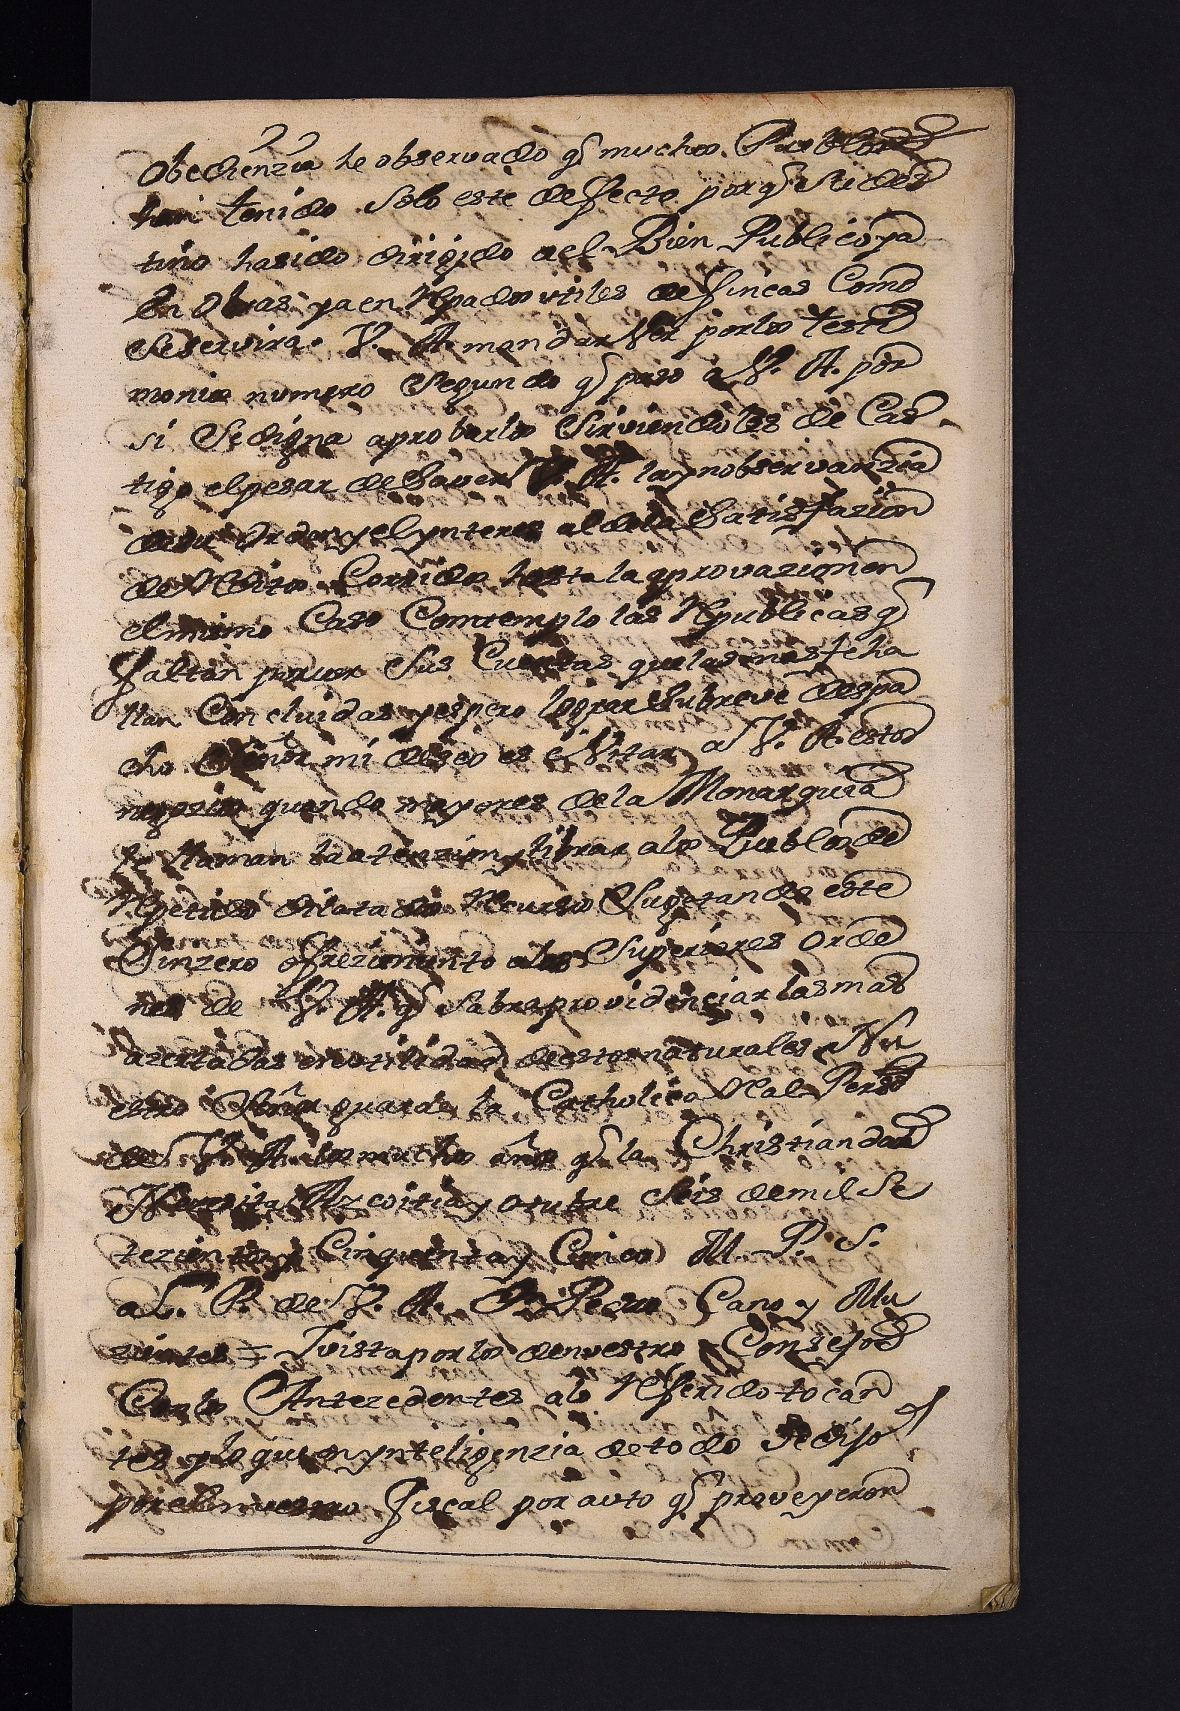 Obedienzia he observado q̃ muchos Pueblos
han tenido solo este deffecto porq̃ su des
tino hasido dirigido a el Bien Publico ya
En Obras ya en Rpados utiles de ffincas Como
se servira V. A. mandar Ver por los testi
monios numero Segundo q̃ paso a V. A. por
si Se digna aprobarlos Sirviendoles de Cas
tigo el pesar de haver V. A. la ynobservanzia
de su Orden y el ynteres al de la Satisfazion
de Reditos Corridos hasta la aprovazion en
el mismo Caso Comtemplo las Rpublicas q̃
ffaltan por ver Sus Cuentas que las mas se ha
llan Concluidas y espero lograr Su breve despa
cho Señor mi deseo es eVitar a V. A. estos
negozios quando mayores de la Monarquia
le llaman la atenzion y librar a los Pueblos de
Rpetidos dilatados Recursos Sugetando este
Sinzero offrezimiento a las Superiores Orde
nes de V. A. q̃ Sabra providenciar las mas
azertadas en utilidad de estos naturales Nu
estro Señor guarde la Catholica Real Persª
de V. A. los muchos años q̃ la Christiandad
Nezesita Azcoitia y Otubre Seis de mil Se
tezientos y Cinquenta y Cinco M. P. S.
a L. P. de V. A. Dn Pedro Cano y Mu
zientes = I vista por los de nuestro Consejo
Con los Antezedentes a lo Rfferido tocan
tes y lo que en ynteligenzia de todo Se dijo
por el nuestro ffiscal por auto q̃ proveyeron